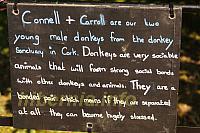 Connell + Carroll are our two
young male donkeys from the donkey
Sanctuary in Cork. Donkeys are very sociable
animals that will form strong social bonds
with other donkeys and animals. They are a
bonded pair which means if they are separated
at all they can become highly stressed.